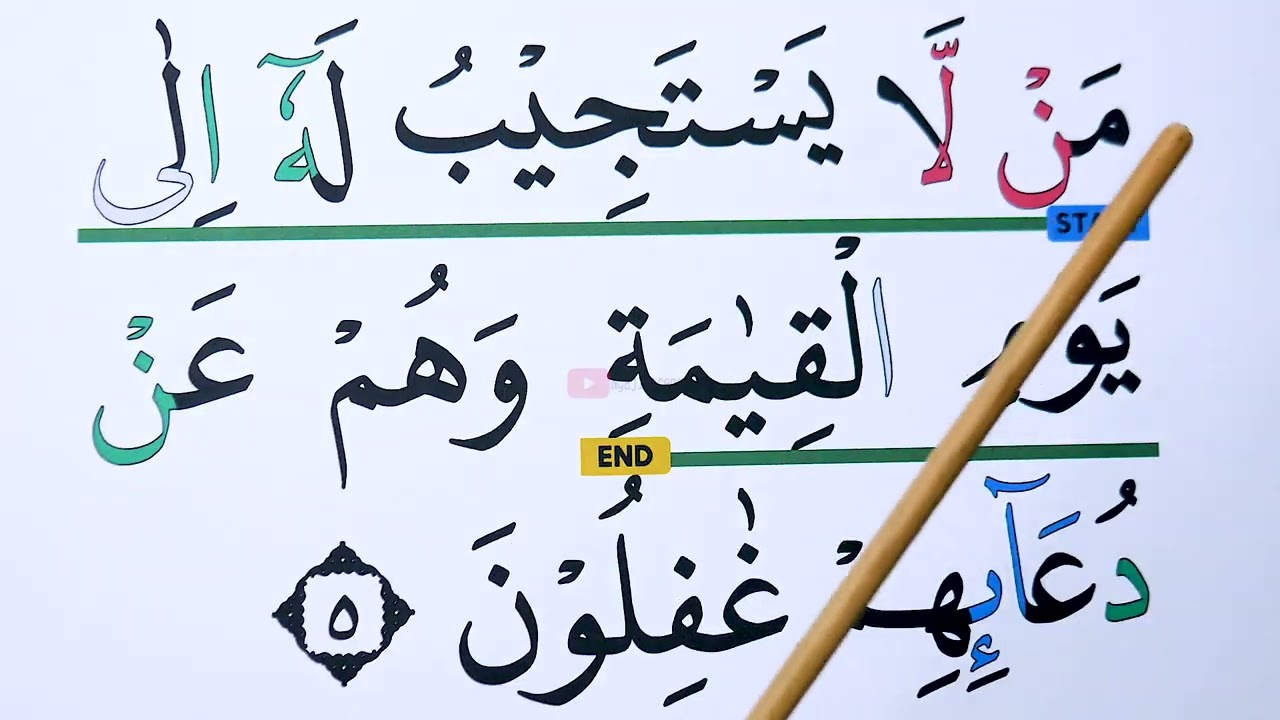 مَنْ لَّا يَسْتَجِيْبُ لَهٗۤ اِلٰى
START
يَوْمِ الْقِيٰمَةِ وَهُمْ عَنْ
END
دُعَآىِٕهِمْ غٰفِلُوْنَ ٥